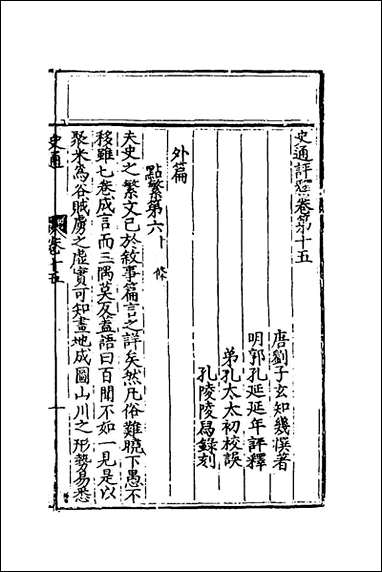 史通評釋卷第十五
唐劉子玄知幾撰著
明郭孔延延年評釋
弟孔太太初校誤
孔陵陵舄錄刻
外篇
點繁第六 十條
夫史之繁文已於敘事篇言之詳矣然凡俗難曉下愚不
移雖七卷成言而三隅莫反蓋語曰百聞不如一見是以
聚米爲谷賊虜之虛實可知畫地成圖山川之形勢易悉
史通
卷之十五